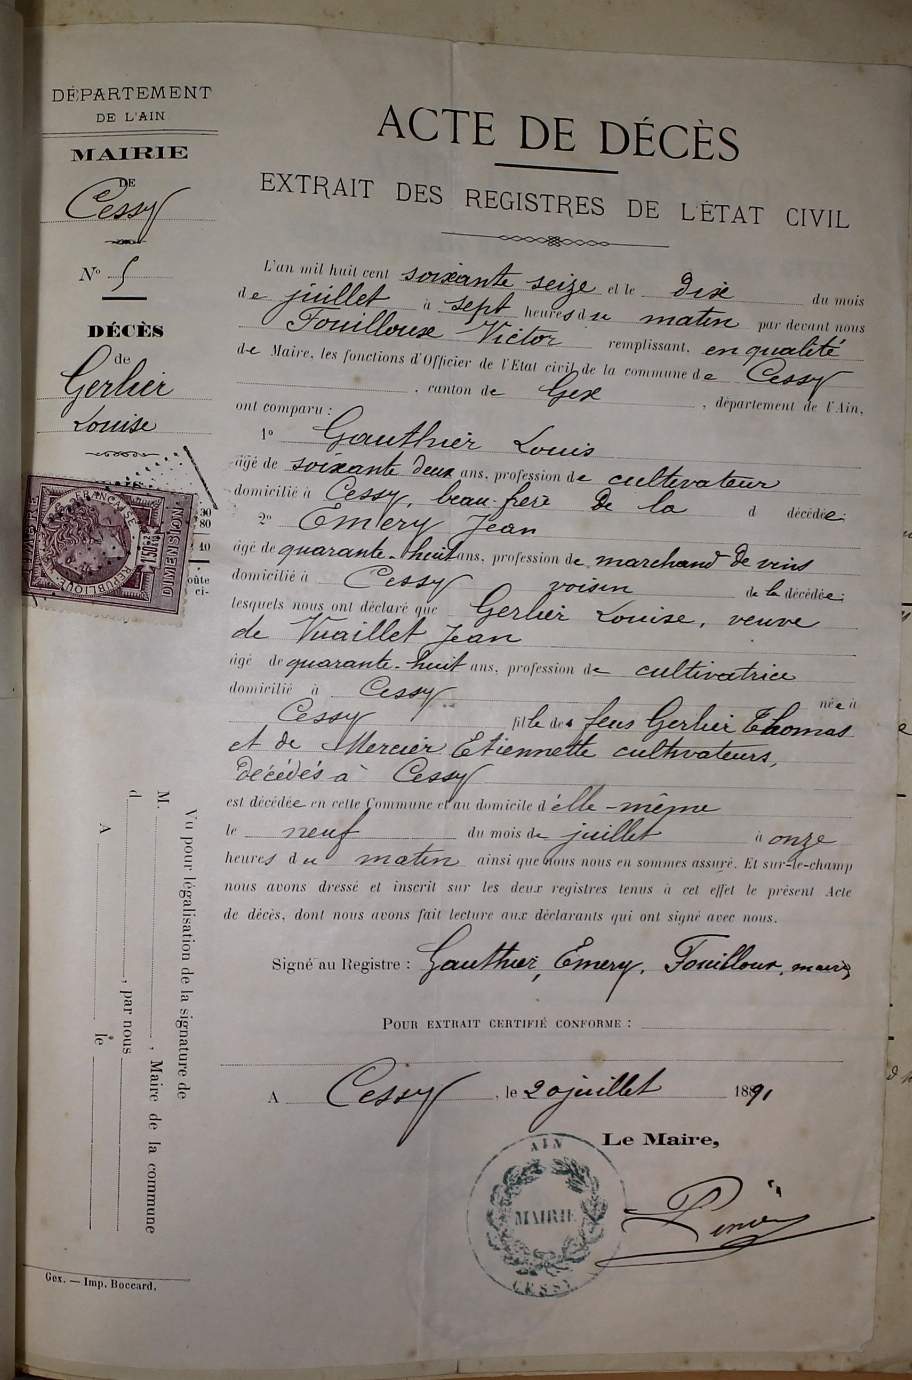 DÉPARTEMENT
DE L'AIN
MAIRIE
DE
Cessy
N° 5
DÉCÈS
de
Gerlier
Louise
ACTE DE DÉCÈS
EXTRAIT DES REGISTRES DE L'ÉTAT CIVIL
L'an mil huit cent soixante seize et le dix du mois
de juillet à sept heures du matin par devant nous
Fouilloux Victor remplissant, en qualité
de Maire, les fonctions d'Officier de l'Etat civil de la commune de Cessy
, canton de Gex, département de l'Ain,
ont comparu :
1° Gauthier Louis
âgé de soixante deux ans, profession de cultivateur
domicilié à Cessy, beau-frère de la d décédée;
2° Emery Jean
âgé de quarante-huit ans, profession de marchand de vins
domicilié à Cessy voisin de la décédée;
lesquels nous ont déclaré que Gerlier Louise, veuve
de Vuaillet Jean
âgé de quarante-huit ans, profession de cultivatrice
domicilié à Cessy née à
Cessy fille des feus Gerlier Thomas
et de Mercier Etiennette cultivateurs,
décédés à Cessy
est décédée en cette Commune et au domicile d'elle-même
le neuf du mois de juillet à onze
heures du matin ainsi que nous nous en sommes assuré. Et sur-le-champ
nous avons dressé et inscrit sur les deux registres tenus à cet effet le présent Acte
de décès, dont nous avons fait lecture aux déclarants qui ont signé avec nous.
Signé au Registre : Gauthier, Emery, Fouilloux, maire
POUR EXTRAIT CERTIFIÉ CONFORME :
A Cessy, le 20 juillet 1891
Le Maire,
AIN
MAIRIE
CESSY
RÉPUBLIQUE FRANÇAISE
TIMBRE
DIMENSION
30
80
10
oûte
ci-
Vu pour légalisation de la signature de
M. , Maire de la commune
d , par nous
A le
Gex. — Imp. Boccard.